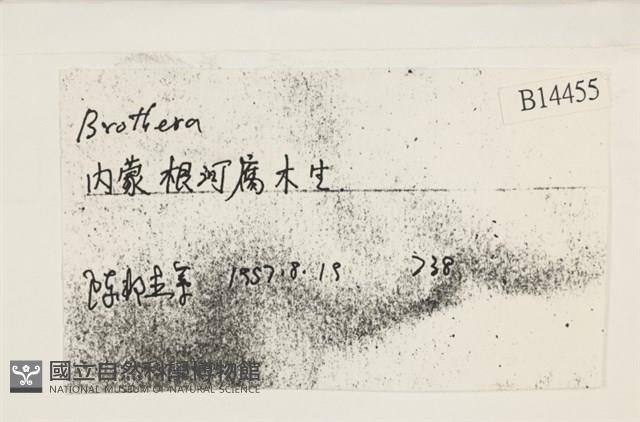 B14455
Brothera
内蒙 根河 腐木生
陈邦杰等 1957.8.19 738
國立自然科學博物館
NATIONAL MUSEUM OF NATURAL SCIENCE